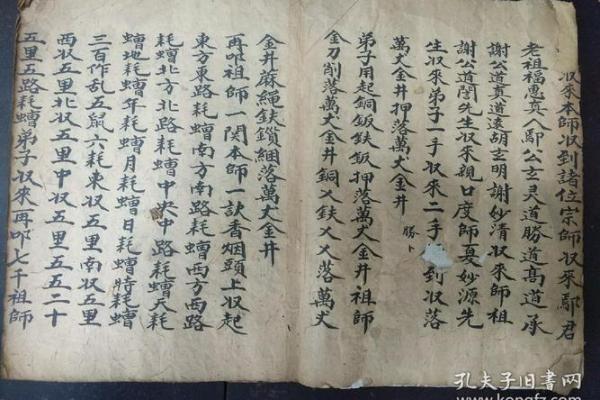 収來本師収到諸位宗師収來鄢君
老祖福惠真人鄢公玄灵道勝道高道承
謝公真道遠胡玄明謝妙清収來師祖
謝公道門先生収來親口度師真妙源先
生収來弟子一手収來二手 到収落
萬丈金井押落萬丈金井
勝卜
弟子用起銅鈑鉄鈑押落萬丈金井祖師
金刀削落萬丈金井銅乂鉄乂乂落萬丈
金井蔴繩鉄鎖綑落萬丈金井
再叩祖師一関本師一訣香烟頭上収起
東方東路耗䗬南方南路耗䗬西方西路
耗䗬北方北路耗䗬中央中路耗䗬天耗
䗬地耗䗬年耗䗬月耗䗬日耗䗬時耗䗬
三百作乱五鼠六耗東収五里南収五里
西収五里北収五里中収五里五五二十
五里五路耗䗬弟子収來再叩七千祖師
孔夫子旧書网
www.kongfz.com